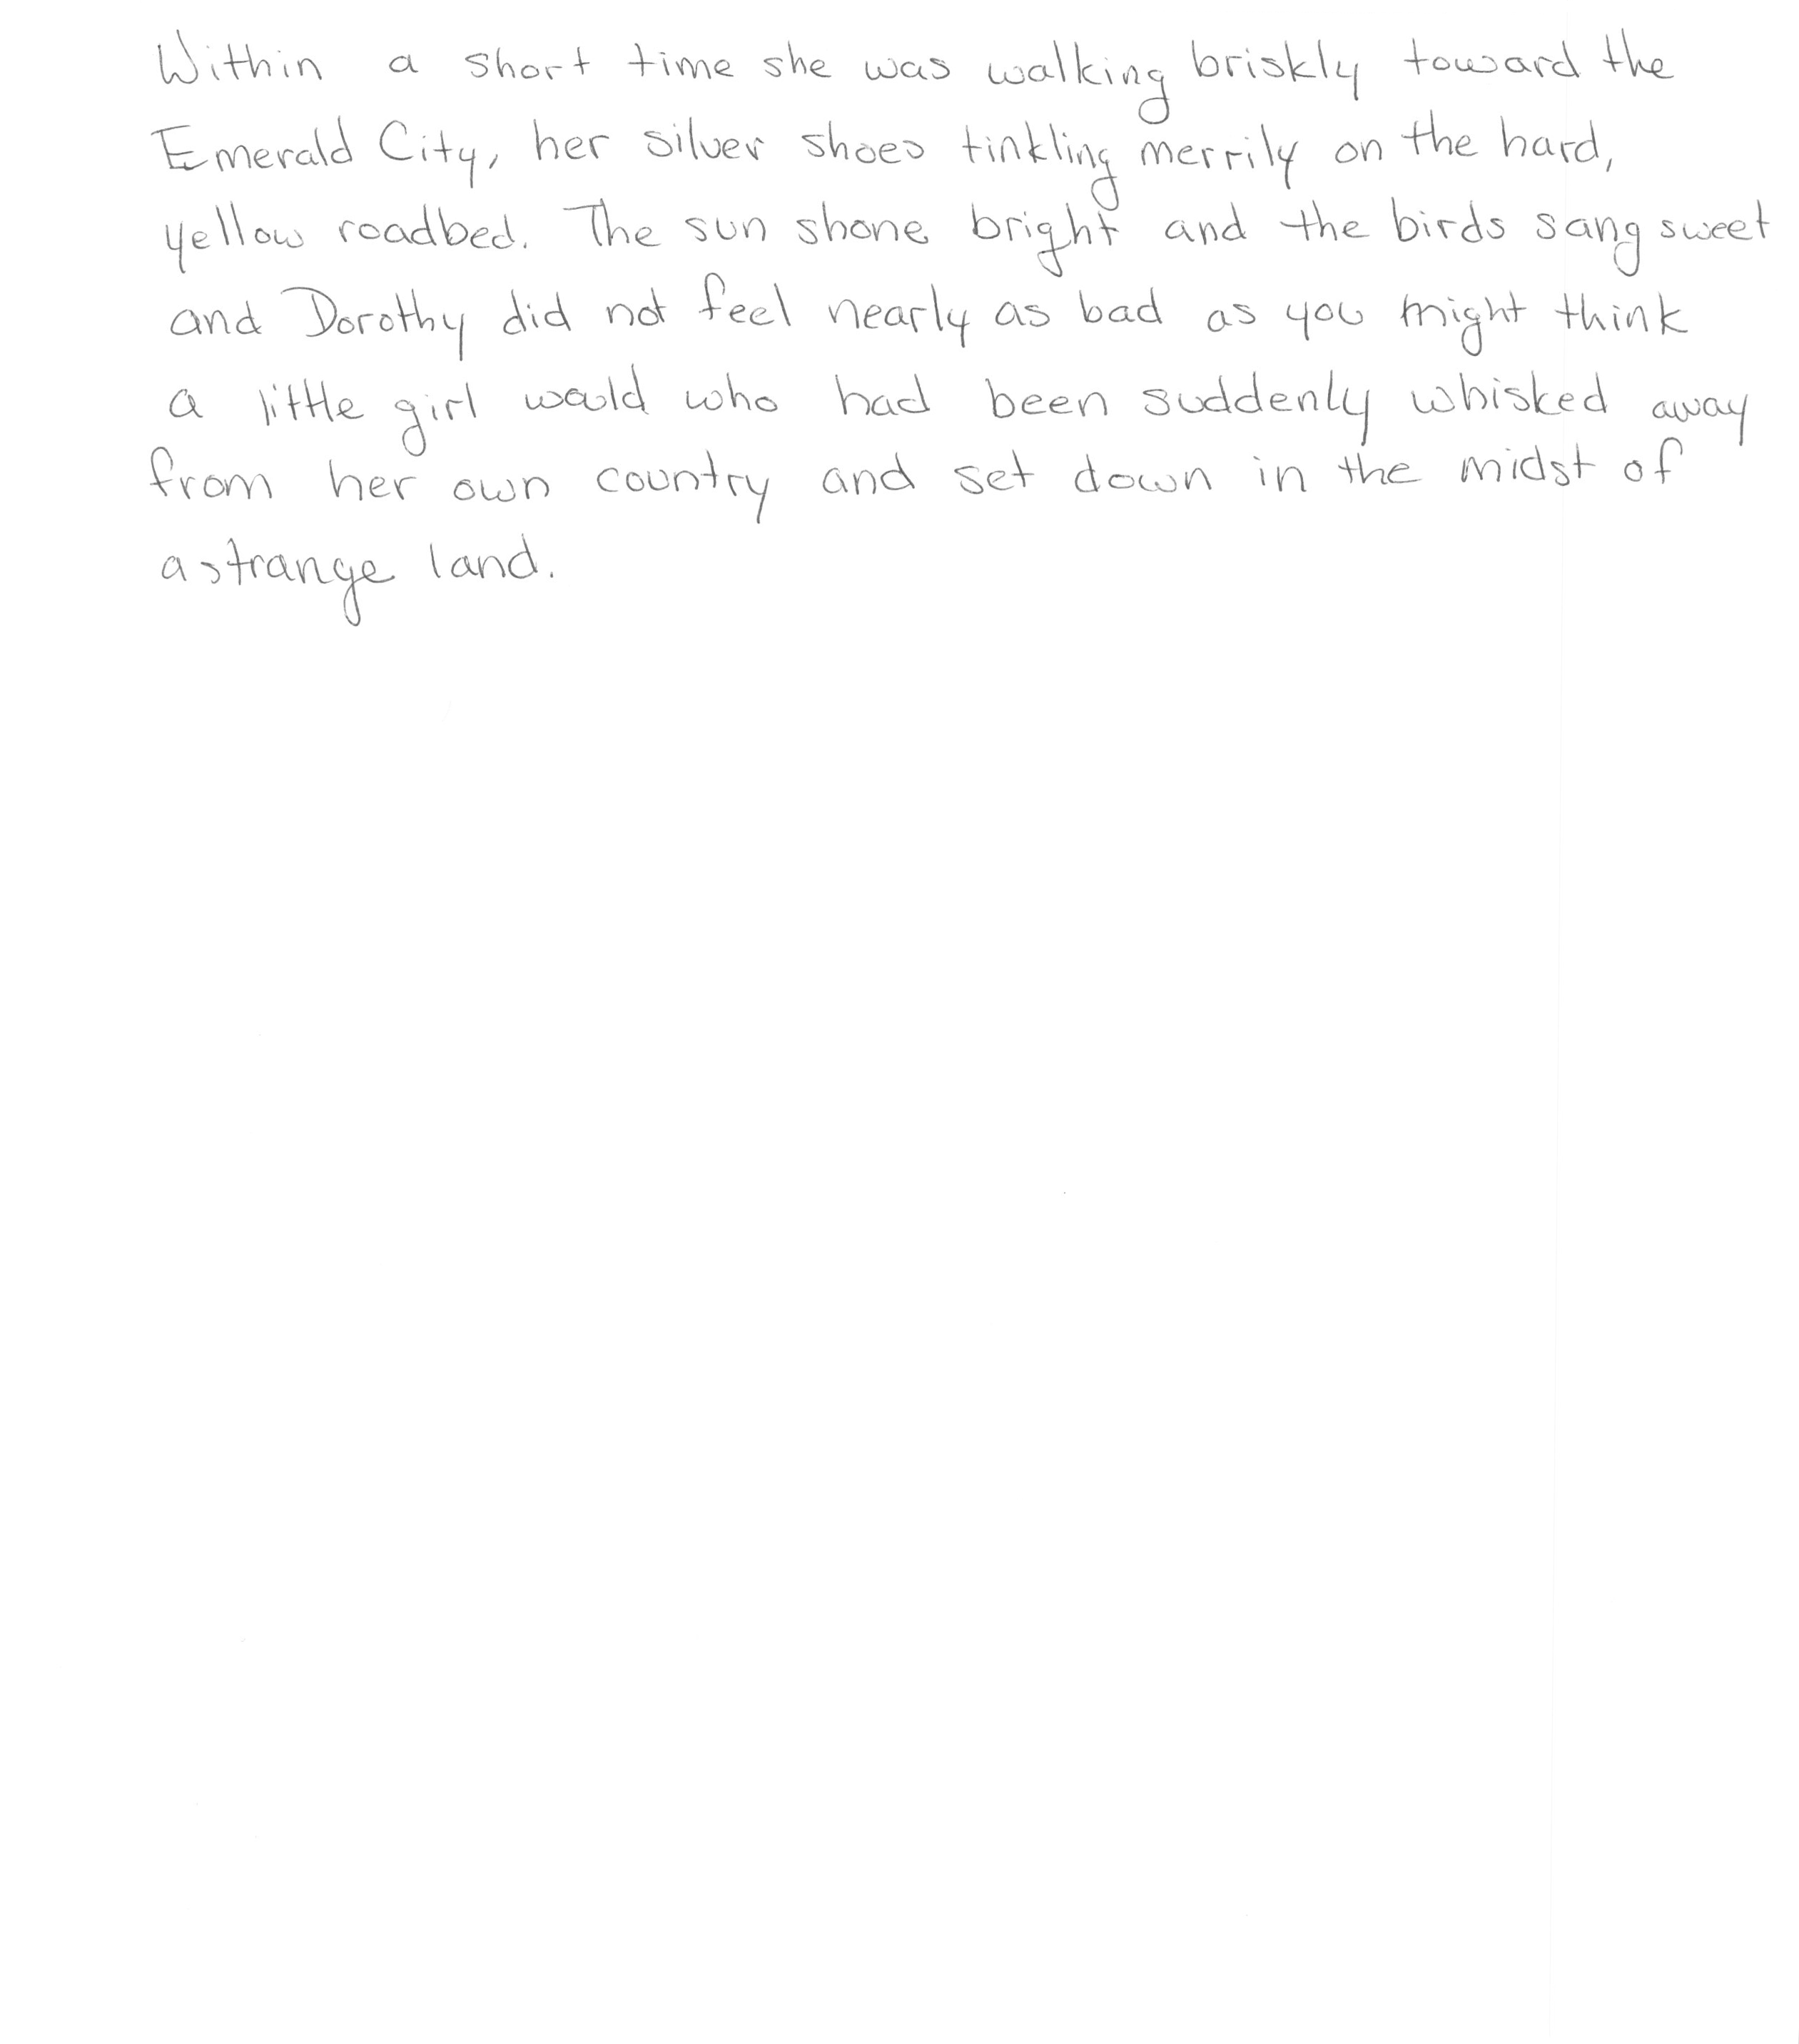 Within a short time she was walking briskly toward the
Emerald City, her silver shoes tinkling merrily on the hard,
yellow roadbed. The sun shone bright and the birds sang sweet
and Dorothy did not feel nearly as bad as you might think
a little girl would who had been suddenly whisked away
from her own country and set down in the midst of
a strange land.